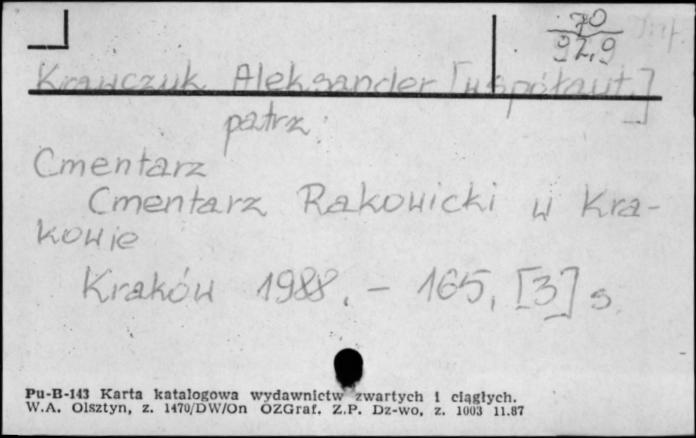 70
92,9
Inf.
Krawczuk Aleksander [współaut.]
patrz:
Cmentarz
Cmentarz Rakowicki w Kra-
kowie
Kraków 1988. - 165, [3] s.
Pu-B-143 Karta katalogowa wydawnictw zwartych i ciągłych.
W.A. Olsztyn, z. 1470/DW/On OZGraf. Z.P. Dz-wo, z. 1003 11.87